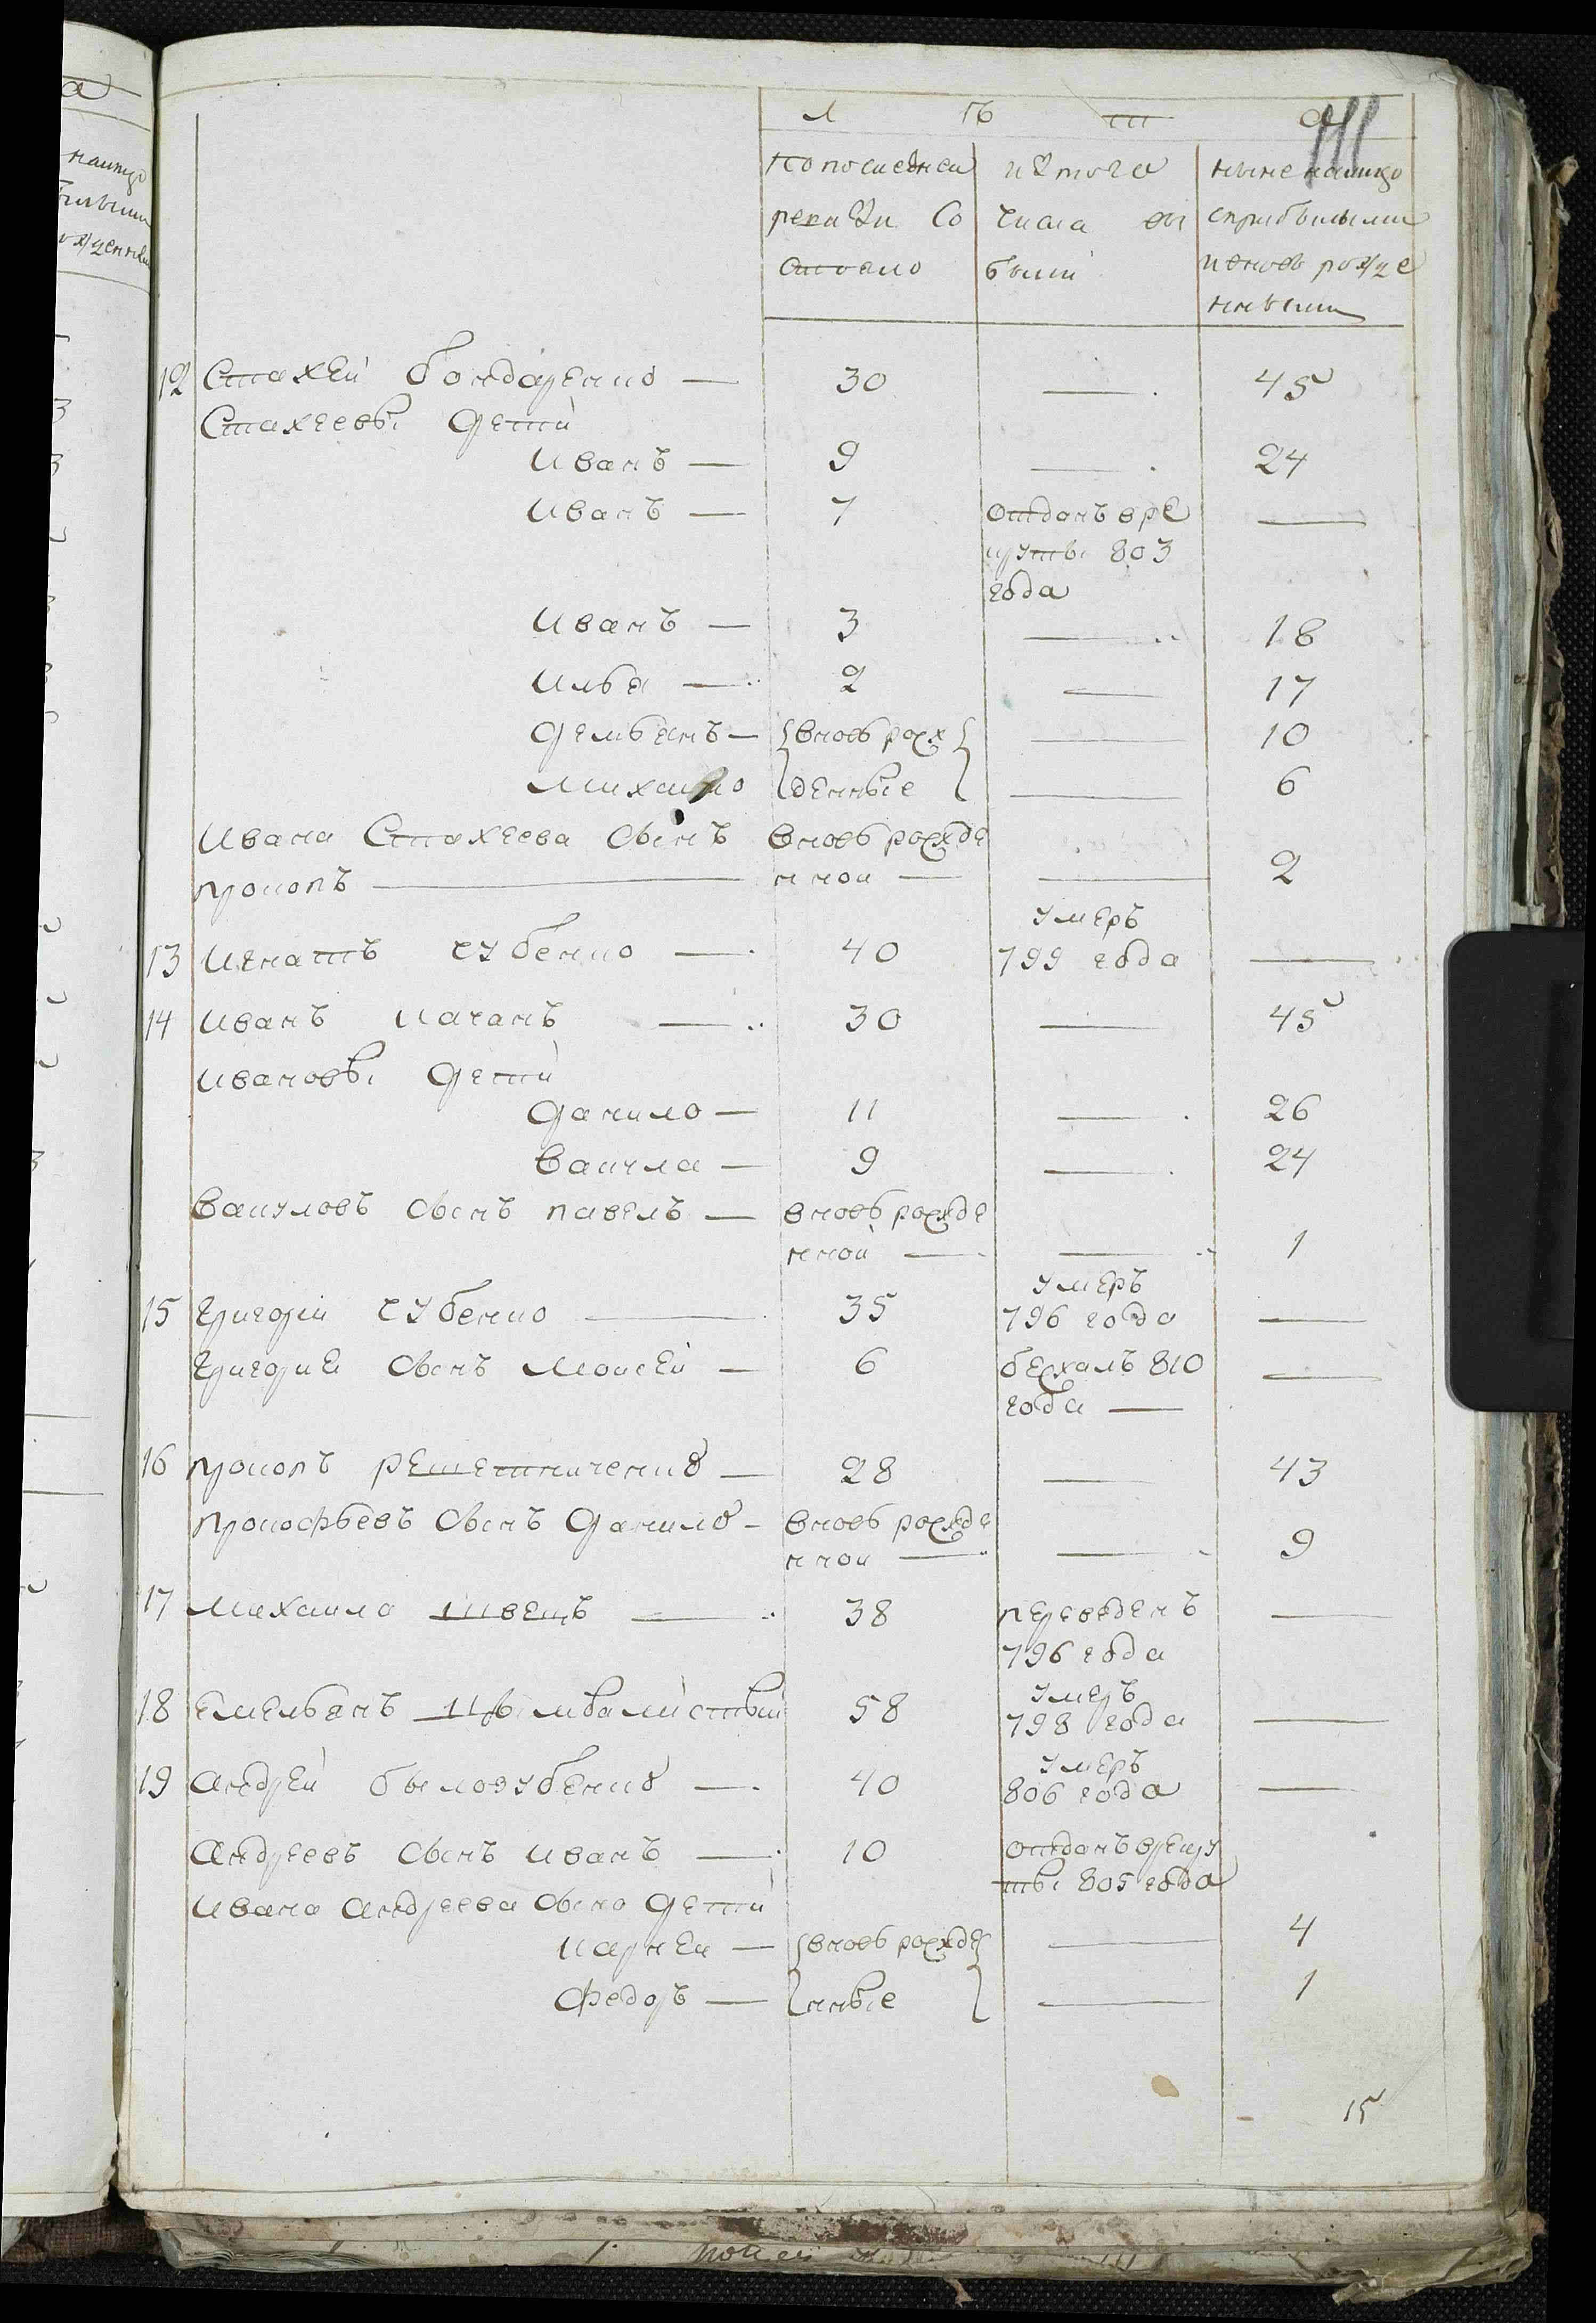 л ѣ т а
По последней ис того ныне налицо
ревизи со числа вы сприбылыми
стояло было ивновь рожде
нными
12 Стахей бондаренко — 30 — 45
Стахеевы дети
иванъ — 9 — 24
иванъ — 7 отданъ вре —
круты 803
года
иванъ — 3 — 18
илья — 2 — 17
демьянъ — вновь рож — 10
михайло денные — 6
ивана Стахеева сынъ вновь рожде
прокопъ — нной — — 2
умеръ
13 игнатъ чубенко — 40 799 года —
14 иванъ качанъ — 30 — 45
ивановы дети
данило — 11 — 26
вакула — 9 — 24
вакуловъ сынъ павелъ — вновь рожде
нной — — 1
умеръ
15 григорій чубенко — 35 796 года —
григория сынъ моисей — 6 бежалъ 810 —
года —
16 прокопъ решетниченко — 28 — 43
прокофьевъ сынъ данило — вновь рожде
нной — — 9
17 михаила швецъ — 38 переведенъ —
796 года
умеръ
18 емельянъ 58 798 года —
умеръ
19 андрей белозубенко — 40 806 года —
андреевъ сынъ иванъ — 10 отданъ врекру
ты 805 года
ивана андреева сына дети
карней — вновь рожде — 4
федоръ — нные — 1
15